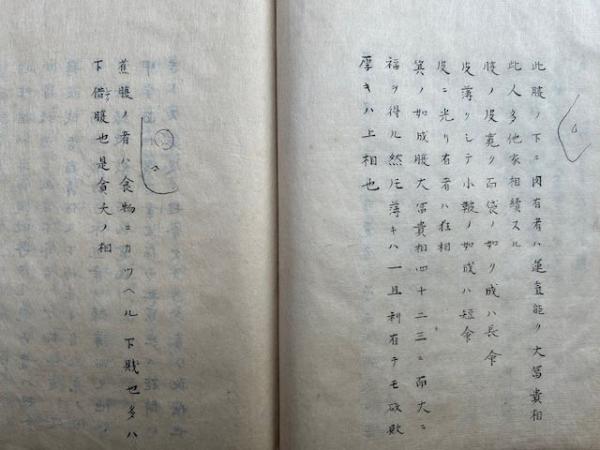 此腹ノ下ニ肉有者ハ運直能ク大冨貴相
此人多他家相續スル
腹ノ皮寛ク而袋ノ如ク成ハ長命
皮薄クシテ小皺ノ如成ハ短命
皮ニ光リ有者ハ狂相
箕ノ如成腹大冨貴相四十二三ニ而大ニ
福ヲ得ル然𪜈薄キハ一旦利有テモ破敗
厚キハ上相也
蕉腹ノ者ハ食物ニカツヘル下賎也多ハ
下借腹也是貪大ノ相